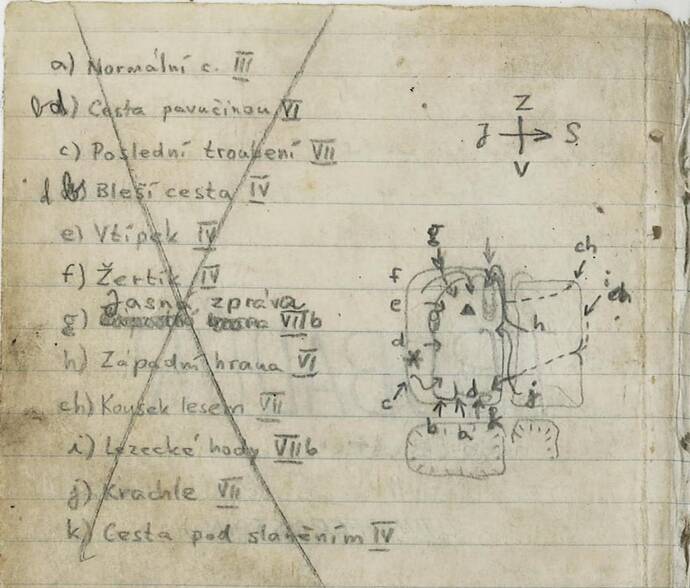 a) Normální c. III
bd) Cesta pavučinou VI
c) Poslední troubení VII
d) Bleší cesta IV
e) Vtípek IV
f) Žertík IV
Jasná zpráva
g) VIIb
h) Západní hrana VI
ch) Koušek lesem VII
i) Lezecké hody VIIb
j) Krachle VII
k) Cesta pod slaněním IV
Z
J S
V
g
ch
f
i
ch
e
h
d
c
d
j
b a k